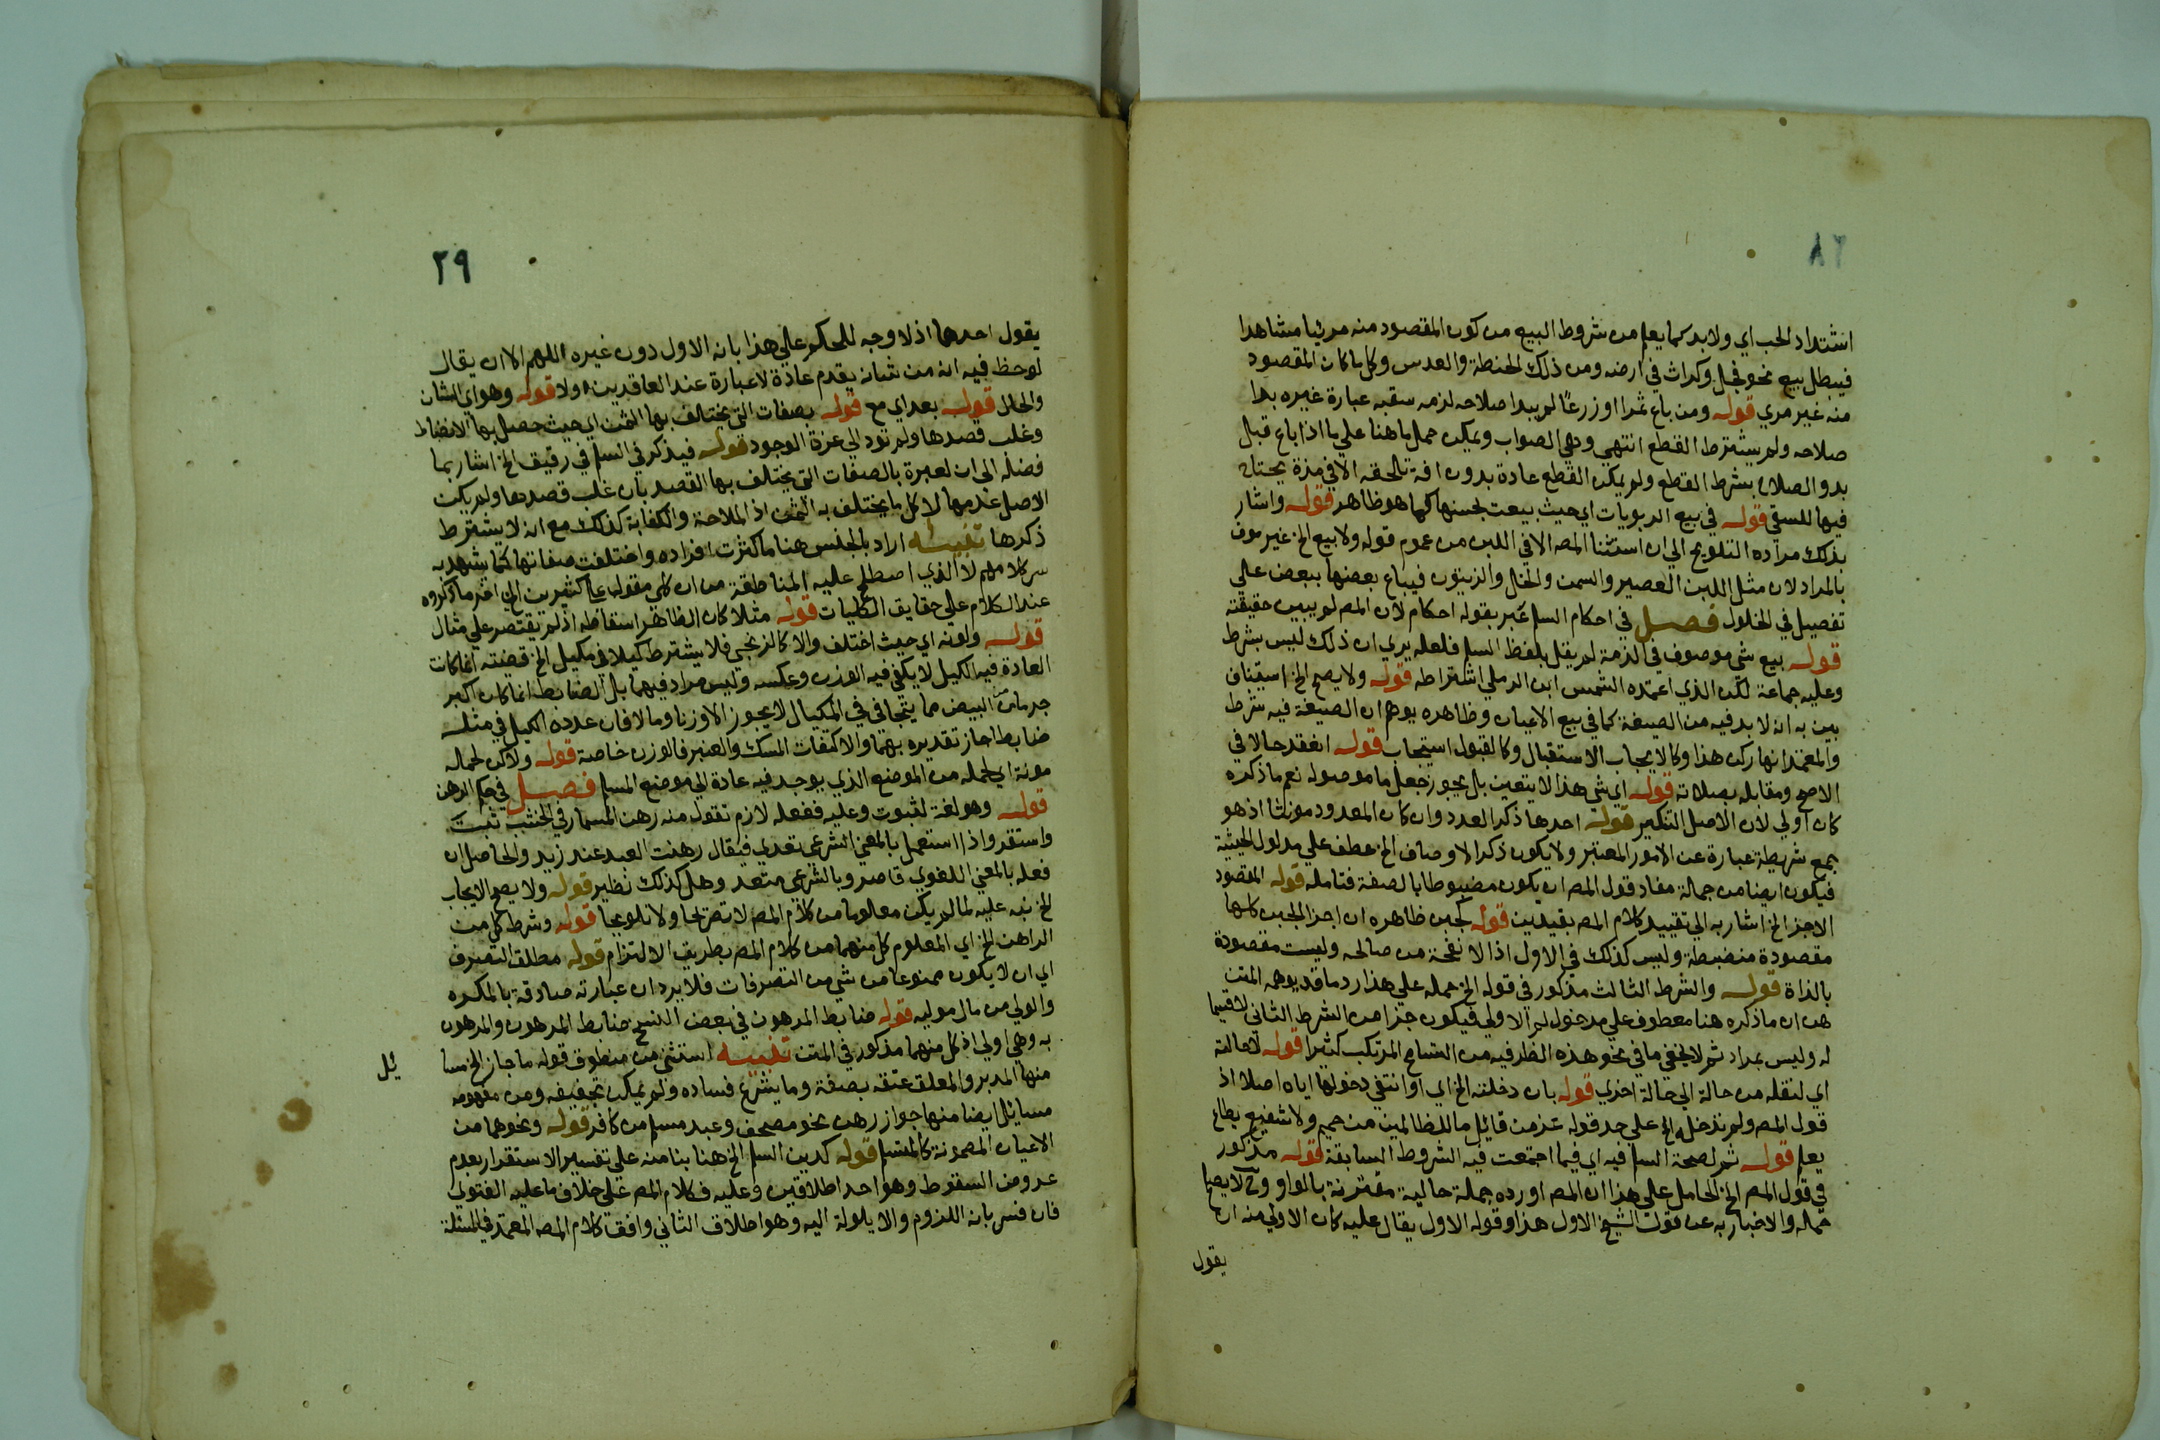 اشتداد الحب اي ولا بد كما يعلم من شروط البيع من كون المقصود منه مرئيا مشاهدا
فيبطل بيع نحو فجل وكراث في ارضه ومن ذلك الحنطة والعدس وكل ما كان المقصود
منه غير مري قوله ومن باع ثمرا او زرعا لم يبدا صلاحه لزمه سقيه عبارة غيره بدا
صلاحه ولم يشترط القطع انتهي وهي الصواب ويمكن حمل ما هنا علي ما اذا باع قبل
بدو الصلاح بشرط القطع ولم يمكن القطع عادة بدون افة تلحقه الا في مدة يحتاج
فيها للسقي قوله في بيع الربويات اي حيث بيعت بجنسها كما هو ظاهر قوله واشار
بذلك مراده التلويح الي ان استثنا المصه الا في اللبن من عموم قوله ولا بيع الخ غير موف
بالمراد لان مثل اللبن العصير والسمن والخل والزيتون فيباع بعضها ببعض علي
تفصيل في الخلول فصل في احكام السلم عبر بقوله احكام لان المصه لم يبين حقيقته
قوله بيع شي موصوف في الذمة لم يقل بلفظ السلم فلعله يري ان ذلك ليس بشرط
وعليه جماعة لكن الذي اعتمده الشمس ابن الرملي اشتراطه قوله ولا يصح الخ استيناف
بين به انه لا بد فيه من الصيغة كما في بيع الاعيان وظاهره يوهم ان الصيغة فيه شرط
والمعتمد انها ركن هذا وكالايجاب الاستقبال وكالقبول استيجاب قوله انعقد حالا في
الاصح ومقابله بصلاته قوله اي شي هذا لا يتعين بل يجوز جعل ما موصوله نعم ما ذكره
كان اولي لان الاصل التنكير قوله احدها ذكر العدد وان كان المعدود مونثا اذ هو
جمع شريطة عبارة عن الامور المعتبر ولا يكون ذكر الاوصاف الخ عطف علي مدلول الحيثية
فيكون ايضا من جملة مفاد قول المصه ان يكون مضبوطا بالصفة فتامله قوله المقصود
الاجزا الخ اشار به الي تقييد كلام المصه بقيدين قوله كجبن ظاهره ان اجزا الجبن كلها
مقصودة منضبطة وليس كذلك في الاول اذ الانفحة من صالحه وليست مقصودة
بالذاة قوله والشرط الثالث مذكور في قوله الخ حمله علي هذا رد ما قد يوهمه المتن
من ان ما ذكره هنا معطوف علي مدخول لم الاولي فيكون جزا من الشرط الثاني لا قسيما
له وليس بمراد ثم لا يخفي ما في نحو هذه الظرفيه من التسامح المرتكب كثيرا قوله لاحالته
اي لنقله من حالة الي حالة اخري قوله بان دخلته الخ اي او انتفي دخولها اياه اصلا اذ
قول المصه ولم تدخله الخ علي حد قوله عز من قائل ما للظالمين من حميم ولا شفيع يطاع
يعلم قوله ثم لصحة السلم فيه اي فيما اجتمعت فيه الشروط السابقة قوله مذكور
في قول المصه الخ الحامل علي هذا ان المصه اورده جملة حالية مقترنة بالواو وح لا يصح
حمله والاخبار به عن قول الشيخ الاول هذا وقوله الاول يقال عليه كان الاولي منه ان
يقول
٢٩
يقول احدها اذ لا وجه للحكم علي هذا بانه الاول دون غيره اللهم الا ان يقال
لوحظ فيه انه من شانه يقدم عادة لاعبارة عند العاقدين اولا قوله وهو اي الشان
والحال قوله بعد اي مع قوله بصفات التي يختلف بها الثمن اي حيث حصل بها الانضباط
وغلب قصدها ولم تود الي عزة الوجود قوله فيذكر في السلم في رقيق الخ اشار بما
فضله الي ان العبرة بالصفات التي يختلف بها القصد بان غلب قصدها ولم يكن
الاصل عدمها لا كل ما يختلف به الثمن اذ الملاحة والكتابة كذلك مع انه لا يشترط
ذكرها تنبيه اراد بالجنس هنا ما كثرت افراده واختلفت صفاتها كما يشهد به
كلامهم لا الذي اصطلح عليه المناطقة من ان كلي مقول علي كثيرين الي اخر ما ذكروه
عند الكلام علي حقايق الكليات قوله مثلا كان الظاهر اسقاطه اذ لم يقتصر علي مثال
قوله ولونه اي حيث اختلف والا كالزنجي فلا يشترط كيلا في مكيل الخ قضيته انما كانت
العادة فيه الكيل لا يكفي فيه الوزن وعكسه وليس مراد فيهما بل الضابط انما كان اكبر
جرما من البيض مما يتجافي في المكيال لا يجوز الا وزنا وما لا فان عد فيه الكيل في مثله
ضابطا جاز تقديره بهما والا كفتات المسك والعنبر فالوزن خاصة قوله ولا كل لحماله
مونة اي لحمله من الموضع الذي يوجد فيه عادة الي موضع المسلم فصل في حكم الرهن
قوله وهو لغة لثبوت وعليه ففعله لازم تقول منه رهن المسمار في الخشب ثبت
واستقر واذا استعمل بالمعني الشرعي تعدي فيقال رهنت العبد عند زيد والحاصل ان
فعله بالمعني اللغوي قاصر وبالشرعي متعد وهل كذلك نظير قوله ولا يصح الايجاب
الخ نبه عليه لما لم يكن معلوما من كلام المصه لا تصريحا ولا تلويحا قوله وشرط كل من
الراهن الخ اي المعلوم كل منهما من كلام المصه بطريق الالتزام قوله مطلق التصرف
اي ان لا يكون ممنوعا من شي من التصرفات فلا يرد ان عبارته صادقة بالمكره
والولي من مال موليه قوله ضابط المرهون في بعض النسخ ضابط المرهون والمرهون
به وهي اولي اذ كل منهما مذكور في المتن تنبيه استثني من منطوق قوله ما جاز الخ مسا
يل
منها المدبر والمعلق عتقه بصفة وما يشرع فساده ولم يمكن تجفيفه ومن مفهومه
مسائل ايضا منها جواز رهن نحو مصحف وعبد مسلم من كافر قوله ونحوهما من
الاعيان المضمونة كالمستلم قوله كدين السلم الخ هنا بنا منه علي تفسير الاستقرار بعدم
عدو من السقوط وهو احد اطلاقين وعليه فكلام المصه علي خلاف ما عليه الفتوي
فان فسر بانه اللزوم والايلولة اليه وهو اطلاق الثاني وافق كلام المصه المعتمد في المسئلة